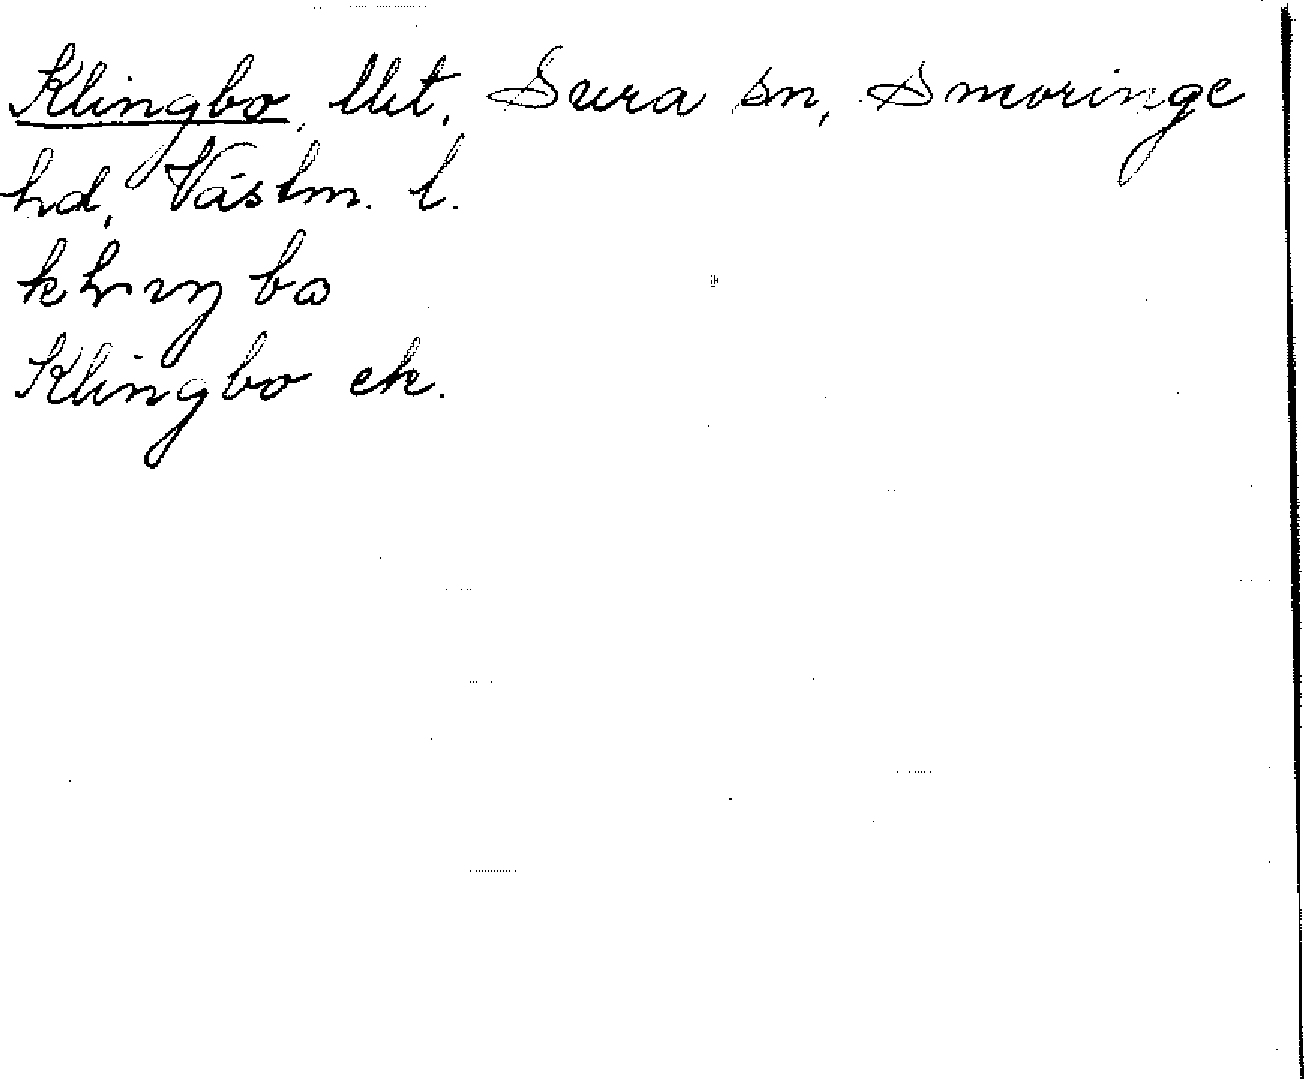 Klingbo, Sura sn, Snevringe
hd, Västm. l.
Klingbo ek.